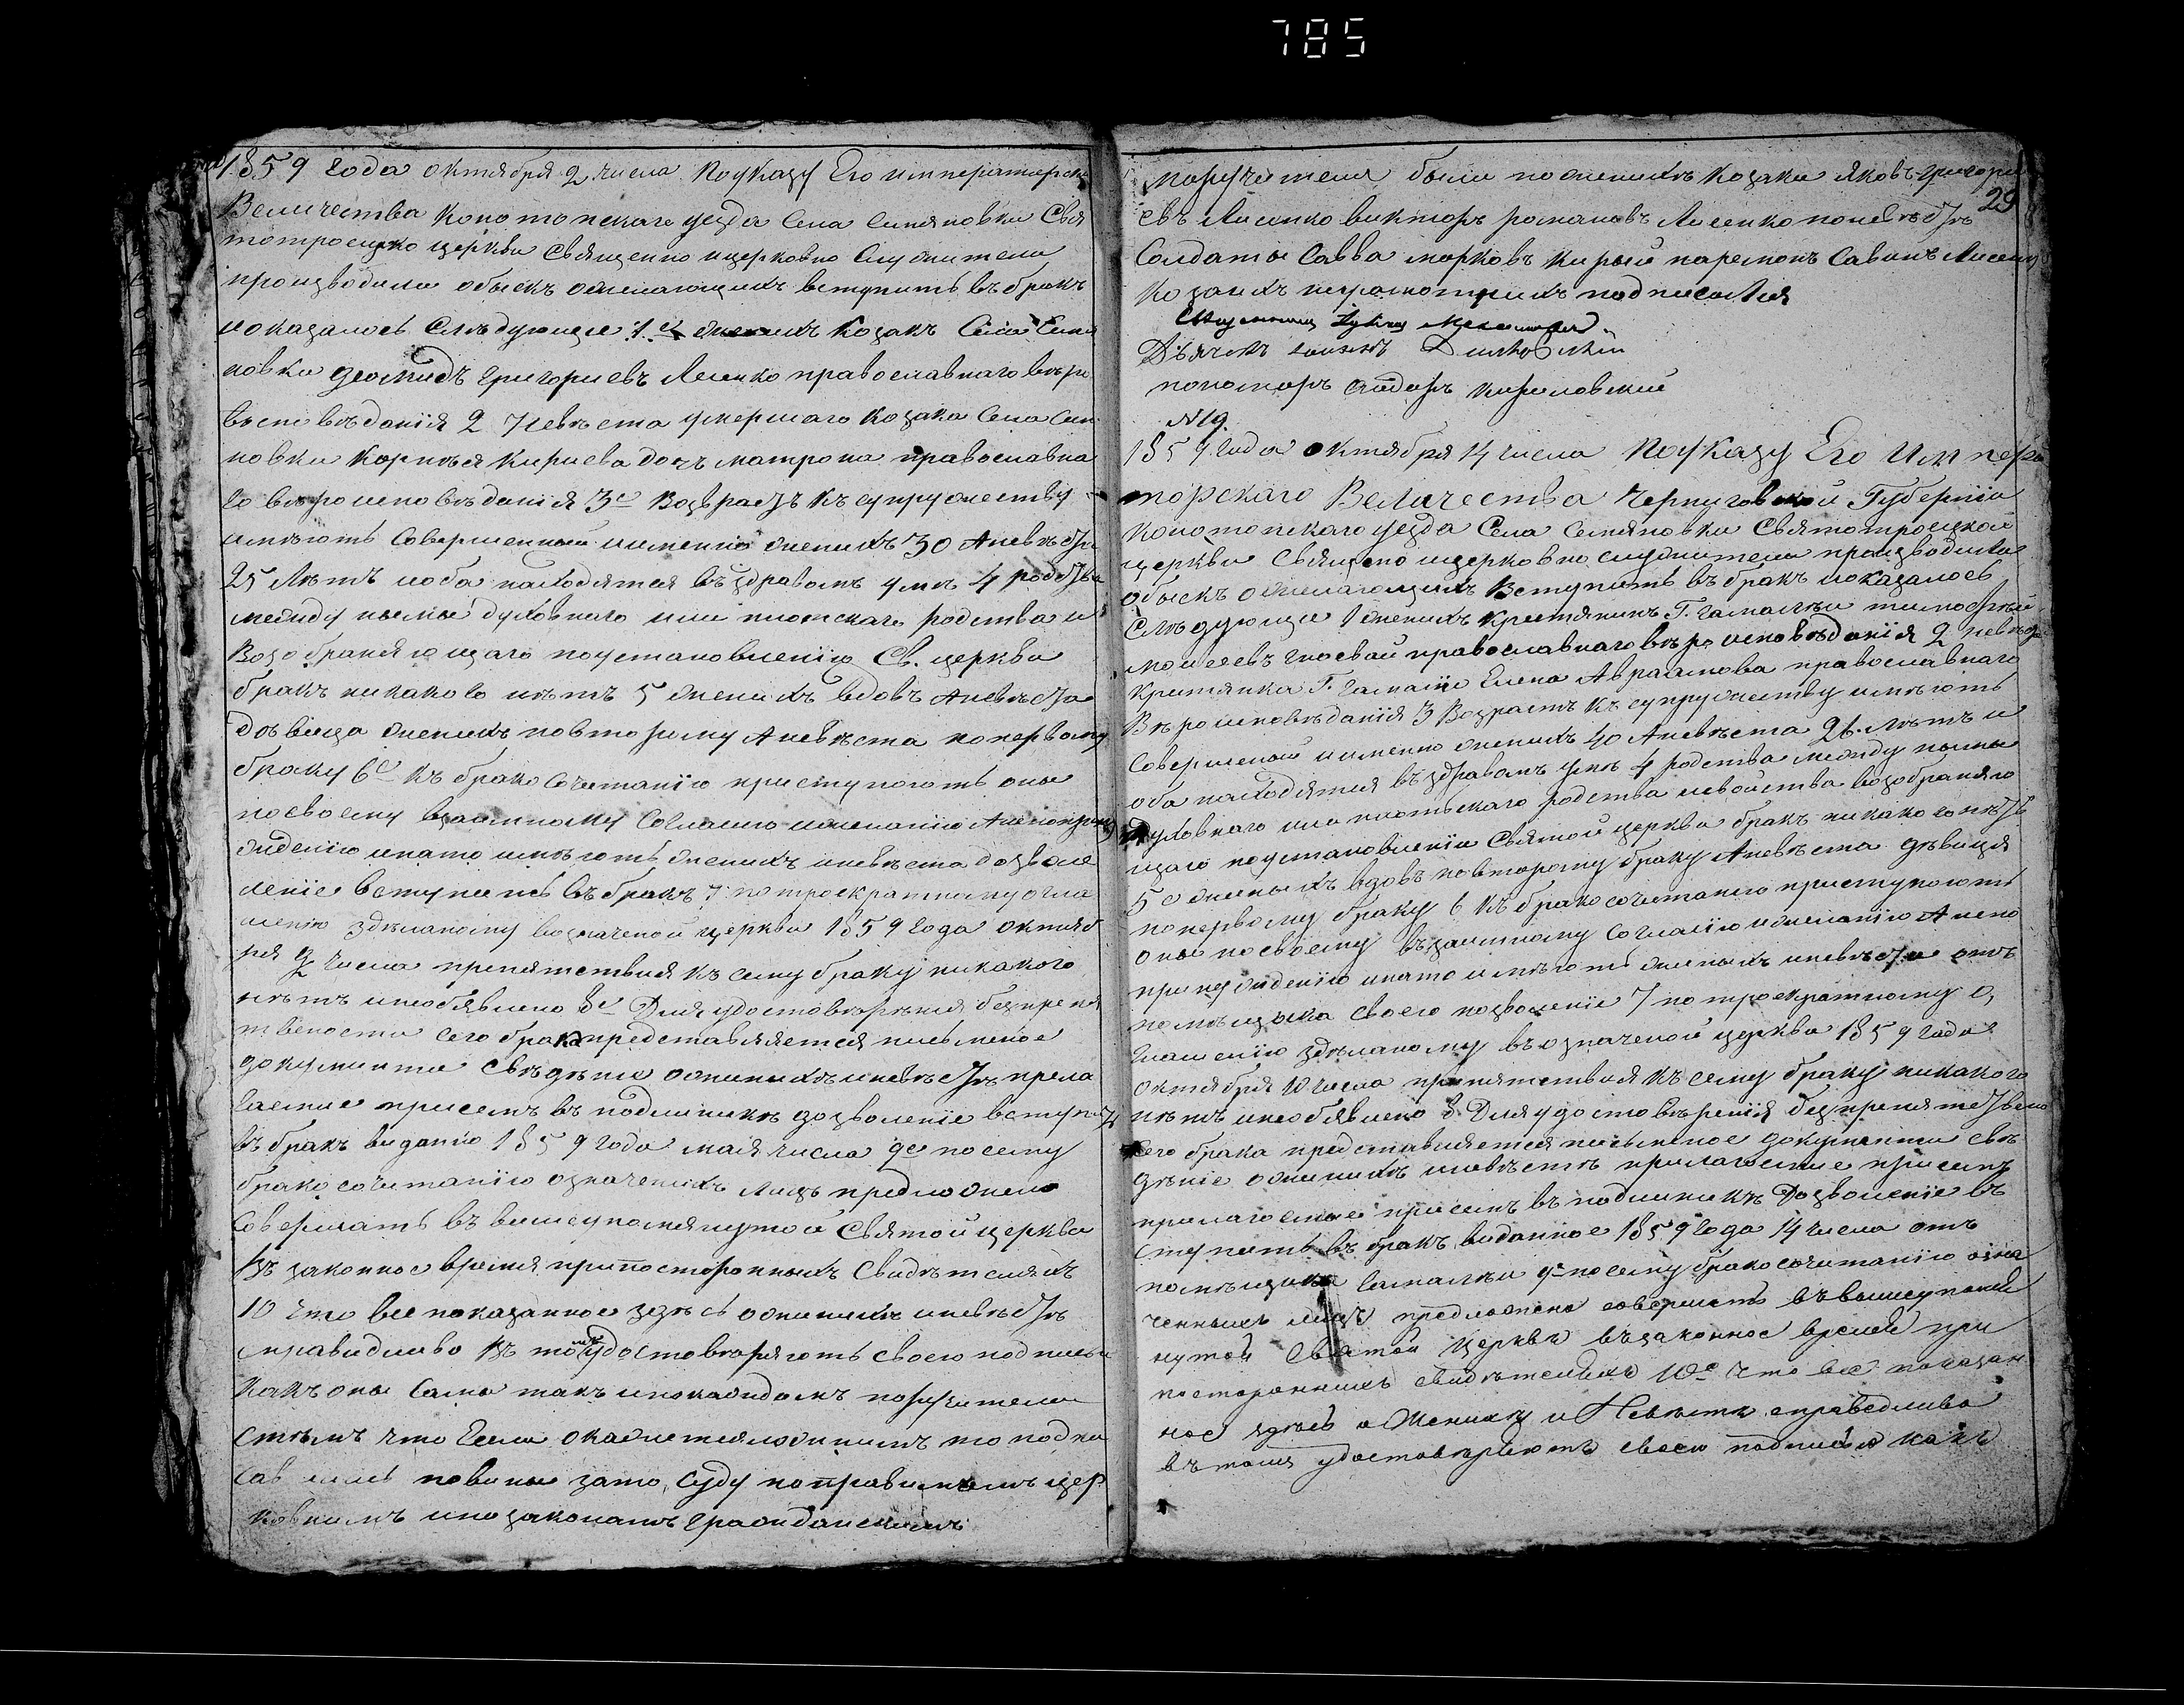 785
1859 года октября 2 числа По Указу Его императорска
Величества Конотопскаго уезда Села Семяновки Свя
тотроецко церкви Священно ицерковно Служители
производили обыскъ ожелающихъ вступить въ бракъ
иоказалось Следующее 1.е женихъ Козакъ Села Семя
новки Диомидъ Григориевъ Лисенко православнаго веро
вспеведания 2 Невеста умершаго Козака Села Сем
новки Корнея Кириева дочъ матрона православна
го вероисповедания 3е Возврастъ къ супружеству
имеютъ Совершенный иименно женихъ 30 Аневеста
25 Летъ иоба находятся въ здравомъ уме 4 родства
между нымы духовнаго или плотскаго родства и
Возобраняющаго поустановлению Св. церкви
бракъ никакого нетъ 5 женихъ вдовъ Аневеста
Девица женихъ повторому Аневеста попервому
браку 6е къ брако сочитанию приступоютъ оны
посвоему взаимному Согласию ижеланию Анепопрену
ждению инато имеютъ женихъ иневеста дозволе
ление вступить въ бракъ 7 потроекратному огла
шению зделаному возначеной церкви 1859 года октяб
ря 2 числа препятствия къ сему браку никакого
нетъ инеобявлено 8е Для удостоверения безпрепя
твености сего брака представляется письменое
документи Сведения ожинихе иневесте прела
гаемие присемъ въ подлинике дозволение вступить
въ бракъ виданю 1859 года мая числа 9е посему
брако сочитанию означенихъ лицъ предложено
Совершать въ вишеупомянутой Святой церкви
Въ законное время припосторонныхъ Свидетеляхъ
10 Что все показанное здесь ожинихе иневесте
справидливо Въ томъ удостоверяютъ своею подписью
Какъ оны Сами такъ ипокаждомъ поручители
стемъ что Если окажетсяложнимъ то подпи
савшиесь повины зато, Суду поправиламъ цер
ковнимъ ипозаконамъ гражданскимъ
29
поручителя были поженихе козаки яковъ Григори
евъ Лисенко викторъ романовъ Лисенко поневесте
Солдаты Савва марковъ Кирый паремонъ Савинъ Лисенко
Козакъ неграмотнихъ подписался
Дьячокъ
пономаръ Сидоръ Кириловский
№19.
1859 года октября 14 числа По Указу Его Импера
торскаго Величества Черниговской Губернии
Конотопскаго уезда Села Семяновки Святотроецкой
церкви Священо ицерковно служители производили
обыскъ ожелающихъ Вступить въ бракъ иоказалось
Следующее 1 женихъ Крестянинъ Г. Гамалеи тимофей
моисеевъ православнаго вероисповедания 2 невеста
Крестянка Г. Гамалие Елена Авраамова православнаго
Вероисповедания 3 Возрастъ къ супружеству имеютъ
Совершеный иименно женихъ 40 Аневеста 26. летъ и
оба находятся въ здравомъ уме 4 родства между нымы
Духовнаго или плотьскаго родства исвойства возобраняю
щаго поустановлении Святой церкви бракъ никакогонетъ
5е женыхъ вдовъ повторому браку Аневеста девица
попервому браку 6 къ брако сочитанию приступоютъ
оны посвоему възаимному согласию ижеланию Анепо
принуждению инато имеютъ женыхъ иневеста отъ
помещыка своего позволение 7 потроекратному о,
глашению зделаному въозначеной церкви 1859 года
октября 10 числа препятствия къ сему браку никакого
нетъ инеобявлено 8. Для удостоверения безпрепятствено
Сего брака представляется письменое документи све
дение ожинихе иневесте прилагаемие присемъ
прилагаемое присемъ въ подлинике Дозволение въ
ступить въ бракъ виданное 1859 года 14 числа отъ
помещика Гамалеи 9е посему брако сочитанию озна
ченныхъ лицъ предложено совершить въ вышеупомя
нутой Святой Церкве възаконное время при
постороннихъ свидетеляхъ 10е Что все показан
ное здесь о Женихе и Невесте справедливо
въ томъ удостоверяютъ своею подписью какъ